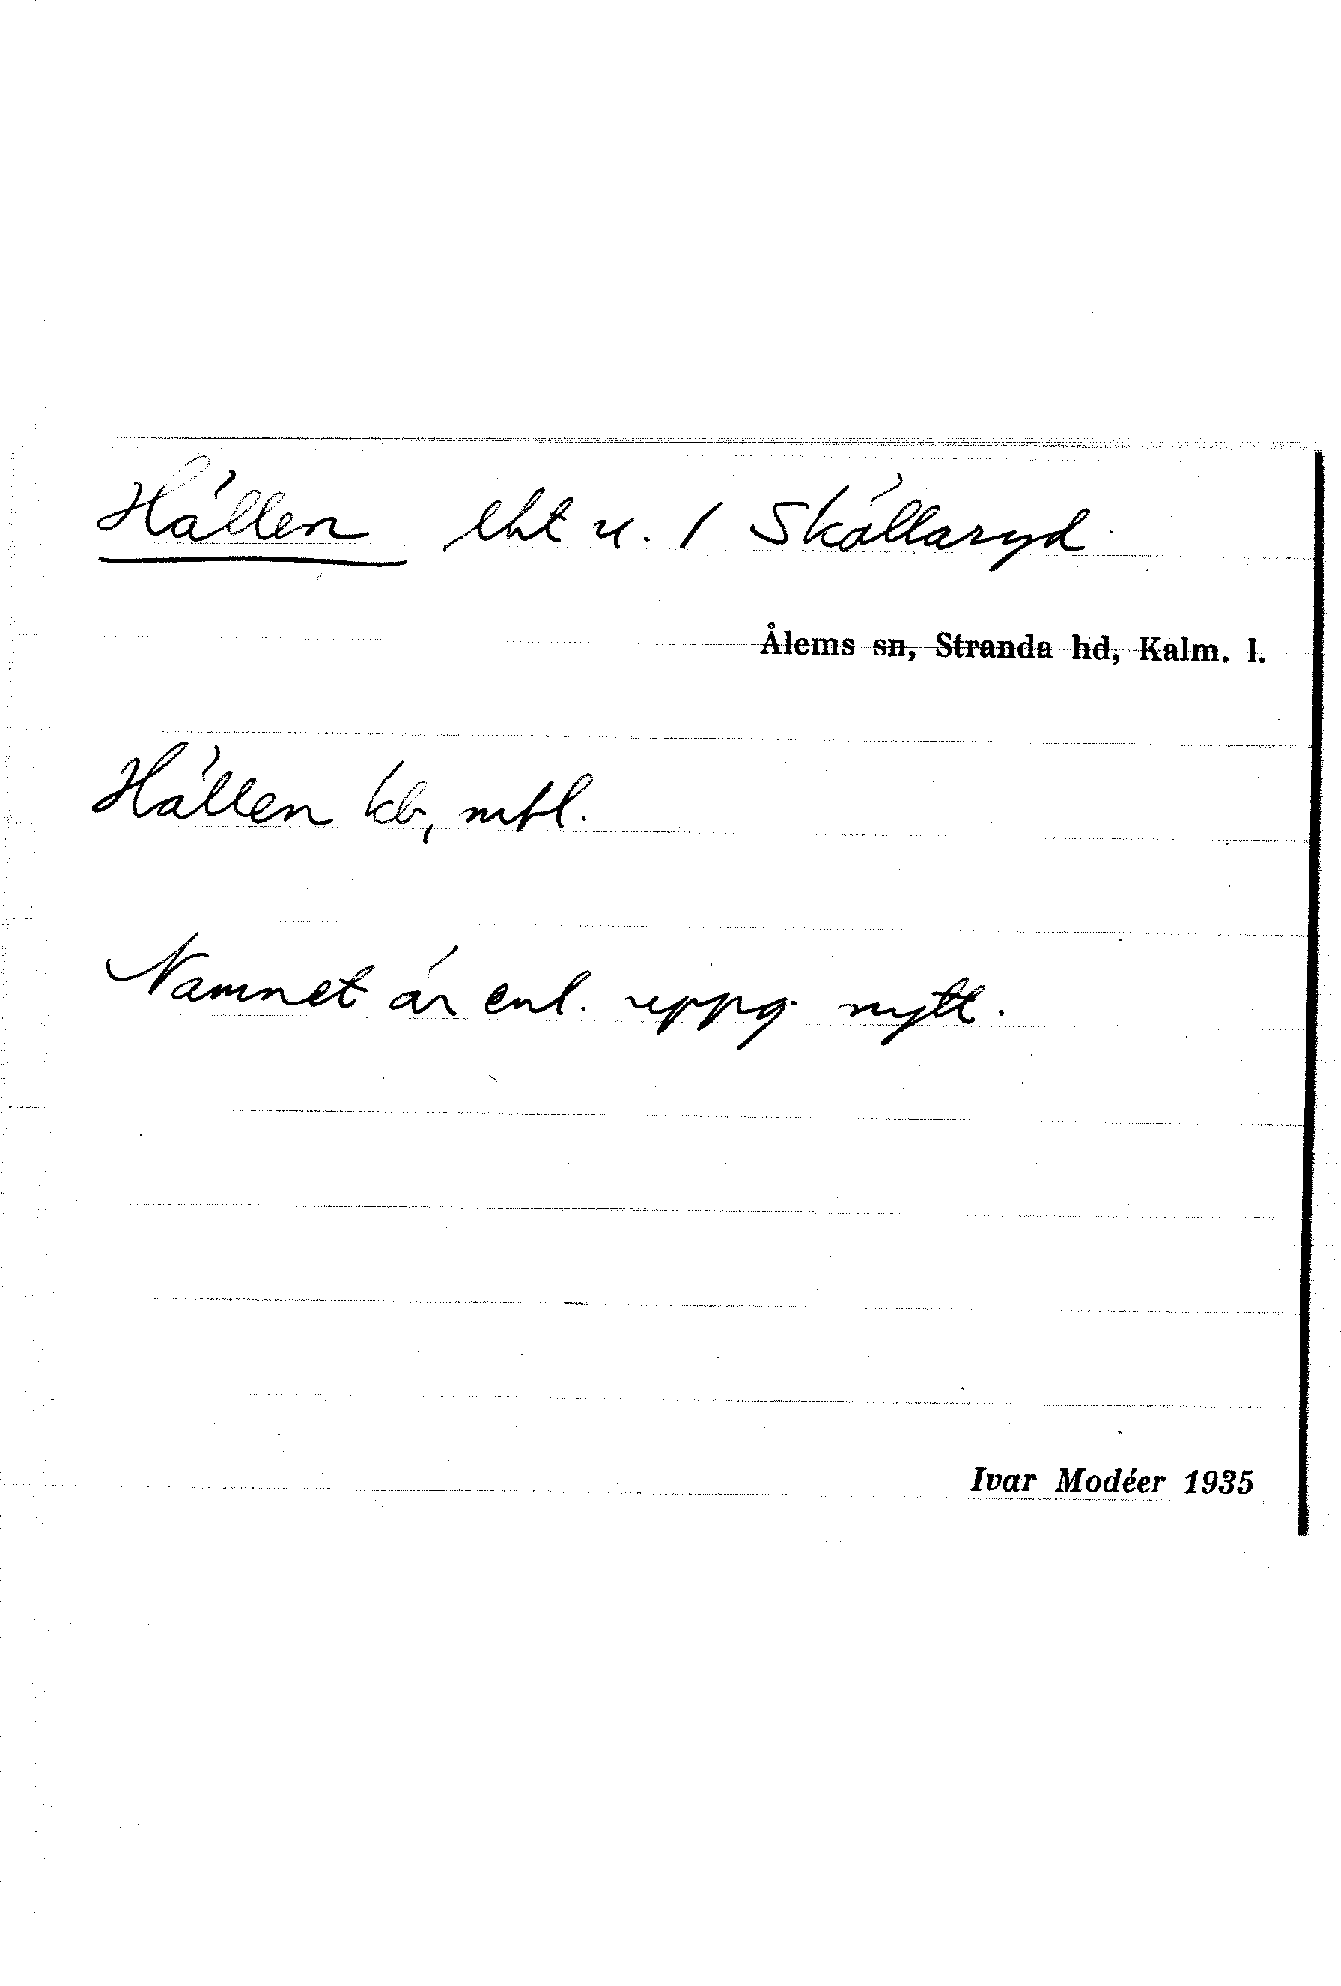 Hällen lht u. 1 Skällaryd
Ålems sn, Stranda hd, Kalm. l.
Hällen kb, mtl.
Namnet är enl. uppg. nytt.
Ivar Modéer 1935